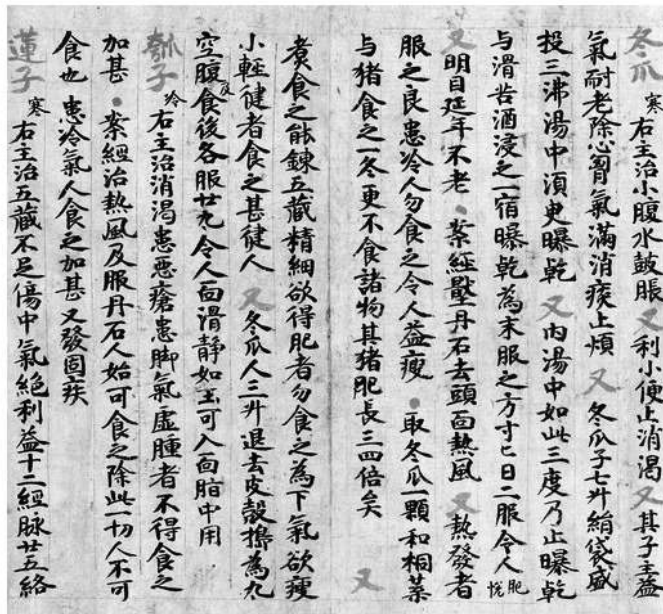 冬瓜寒右主治小腹水鼓脹又利小便止消渴又其子主益
氣耐老除心胷氣滿消痰止煩又冬瓜子七升絹袋盛
投三沸湯中湏臾曝乾又内湯中如此三度乃止曝乾
与滑苦酒浸之一宿曝乾為末服之方寸匕日二服令人肥悅
又明目延年不老案經壓丹石去頭面熱風又熱發者
服之良患冷人勿食之令人益瘦取冬瓜一顆和桐葉
与猪食之一冬更不食諸物其猪肥長三四倍矣又
煑食之能鍊五藏精細欲得肥者勿食之為下氣欲瘦
小輕健者食之甚健人又冬瓜人三升退去皮殼擣為丸
空腹及食後各服廿丸令人面滑静如玉可入面脂中用
瓠子冷右主治消渴患惡瘡患脚氣虚腫者不得食之
加甚案經治熱風及服丹石人始可食之除此一切人不可
食也患冷氣人食之加甚又發固疾
蓮子寒右主治五藏不足傷中氣絶利益十二經脉廿五絡